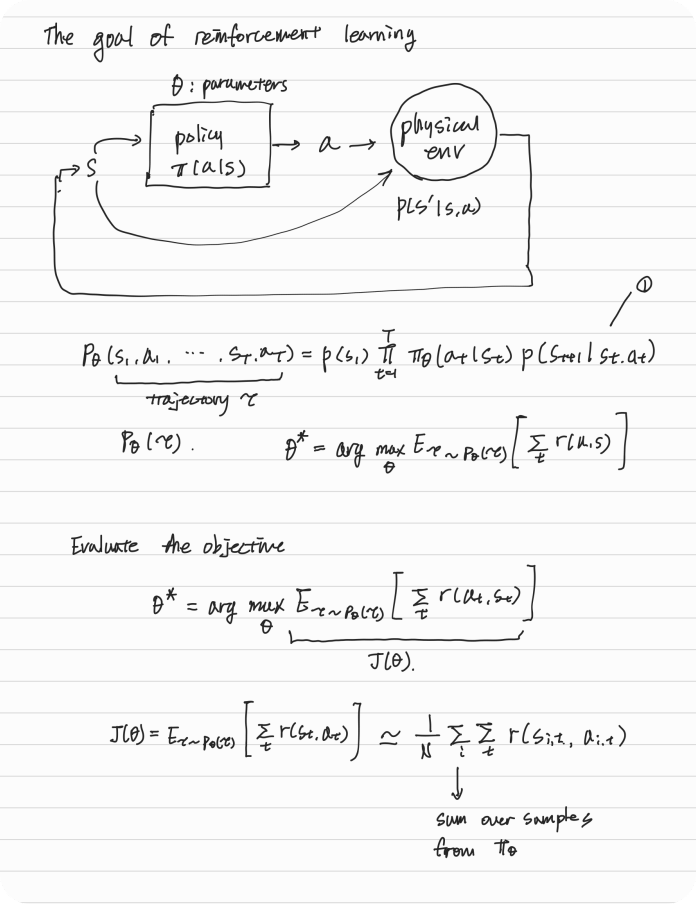 The goal of reinforcement learning
θ : parameters
policy
π(a|s)
s
a
physical
env
p(s'|s,a)
①
Pθ(s₁,a₁, ⋯ , s_T,a_T) = p(s₁) ∏_{t=1}^{T} πθ(a_t|s_t) p(s_{t+1}|s_t,a_t)
trajectory τ
Pθ(τ).
θ* = arg max_θ E_{τ~Pθ(τ)} [ Σ_t r(a,s) ]
Evaluate the objective
θ* = arg max_θ E_{τ~Pθ(τ)} [ Σ_t r(a_t,s_t) ]
J(θ).
J(θ) = E_{τ~Pθ(τ)} [ Σ_t r(s_t,a_t) ] ≃ 1/N Σ_i Σ_t r(s_{i,t}, a_{i,t})
sum over samples
from πθ